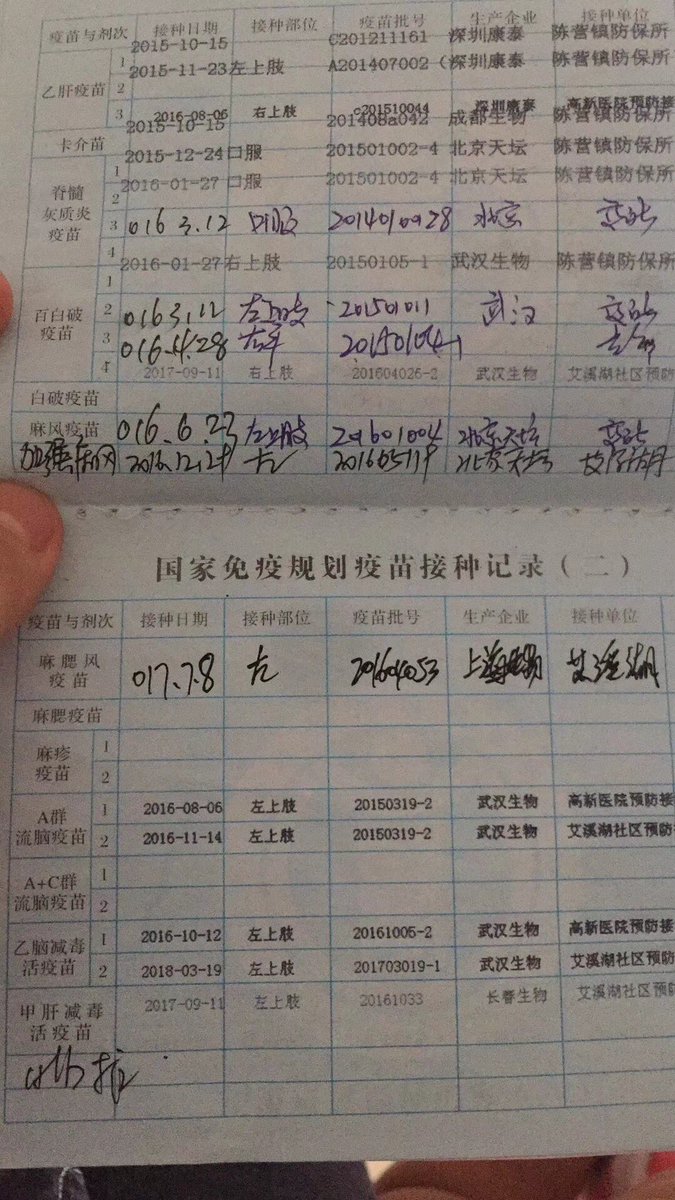 疫苗与剂次 接种日期 接种部位 疫苗批号 生产企业 接种单位
2015-10-15 C201211161 深圳康泰 陈营镇防保所
乙肝疫苗 1 2015-11-23 左上肢 A201407002 ( 深圳康泰 陈营镇防保所
2
3 2016-08-06 右上肢 c201510044 深圳康泰 高新医院预防接
卡介苗 2015-10-15 201408a042 成都生物 陈营镇防保所
脊髓灰质炎疫苗 1 2015-12-24 口服 201501002-4 北京天坛 陈营镇防保所
2 2016-01-27 口服 201501002-4 北京天坛 陈营镇防保所
3 016 3.12 口服 北京
4
百白破疫苗 1 2016-01-27 右上肢 20150105-1 武汉生物 陈营镇防保所
2 016 3.12 左上肢 201501011 武汉
3 016.4.28
4 2017-09-11 右上肢 201604026-2 武汉生物 艾溪湖社区预防
白破疫苗
麻风疫苗 016.6.23 左上肢 201601004 北京天坛
2016.12.29 左 北京天坛
国家免疫规划疫苗接种记录(二)
疫苗与剂次 接种日期 接种部位 疫苗批号 生产企业 接种单位
麻腮风疫苗 017.7.8 左 201604053 上海 艾溪湖
麻腮疫苗
麻疹疫苗 1
2
A群流脑疫苗 1 2016-08-06 左上肢 20150319-2 武汉生物 高新医院预防接
2 2016-11-14 左上肢 20150319-2 武汉生物 艾溪湖社区预防
A+C群流脑疫苗 1
2
乙脑减毒活疫苗 1 2016-10-12 左上肢 20161005-2 武汉生物 高新医院预防接
2 2018-03-19 左上肢 201703019-1 武汉生物 艾溪湖社区预防
甲肝减毒活疫苗 2017-09-11 左上肢 20161033 长春生物 艾溪湖社区预防